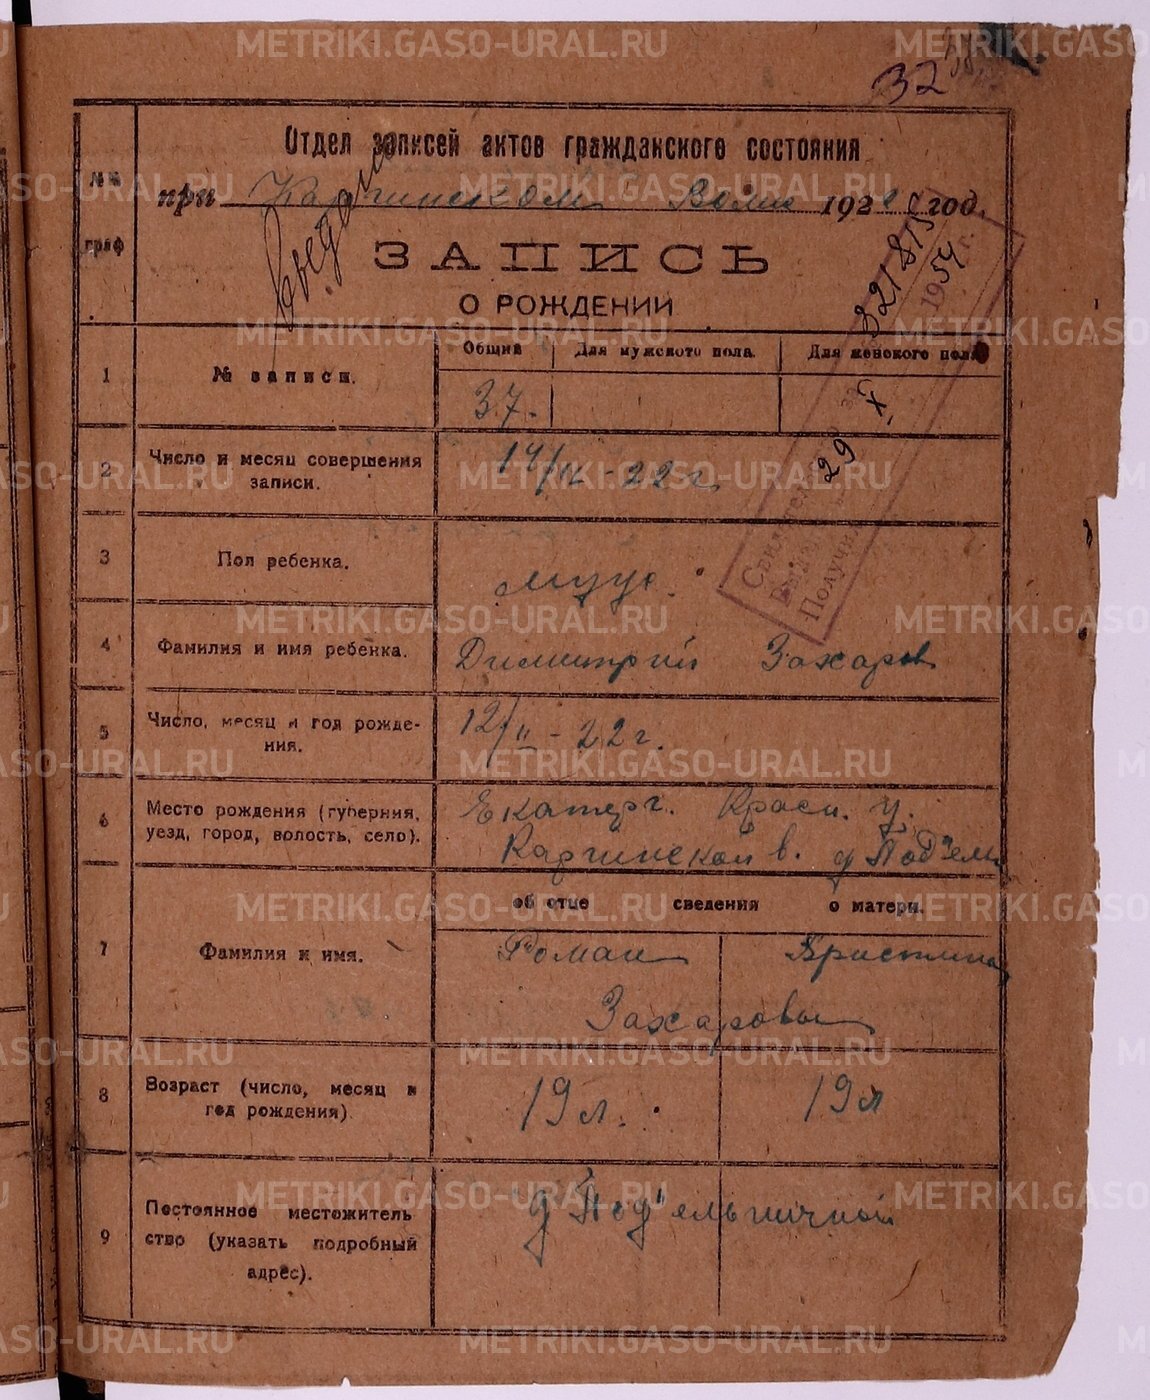 32
Отдел записей актов гражданского состояния
при Каргинском Волис 1922 год.
Сведано
ЗАПИСЬ
О РОЖДЕНИИ
№№ граф
1
№ записи.
Общий
Для мужского пола.
Для женского пола
37.
2
Число и месяц совершения
записи.
14/II - 22 г.
3
Пол ребенка.
муж.
4
Фамилия и имя ребенка.
Димитрий Захаров
5
Число, месяц и год рожде-
ния.
12/II - 22 г.
6
Место рождения (губерния,
уезд, город, волость, село).
Екатерг. Красн. у.
Каргинской в. д Под'ель
об отце сведения о матери.
7
Фамилия и имя.
Роман
Христина
Захаровы
8
Возраст (число, месяц и
год рождения)
19 л.
19 л
9
Постоянное местожитель
ство (указать подробный
адрес).
д Под'ельничной
821815
29 X 1954 г.
Получил
METRIKI.GASO-URAL.RU